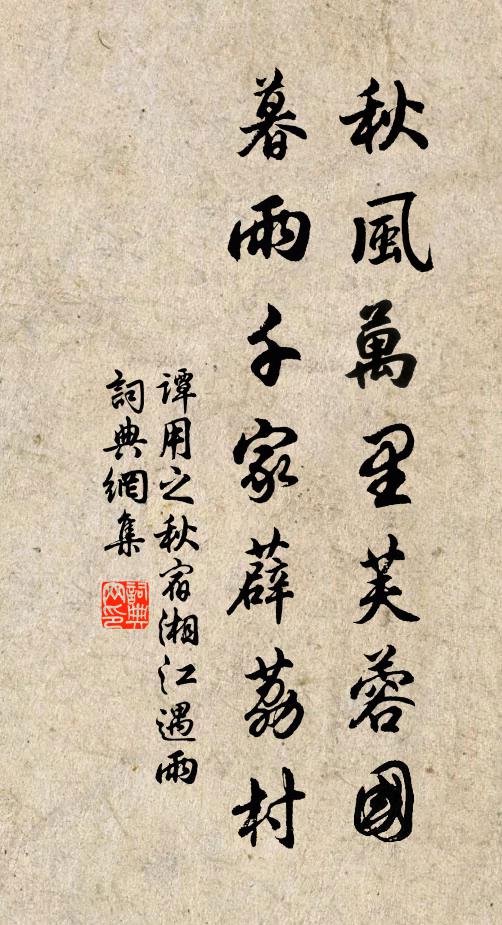 秋風萬里芙蓉國
暮雨千家薜荔村
譚用之秋宿湘江遇雨
詞典網集
詞典網印